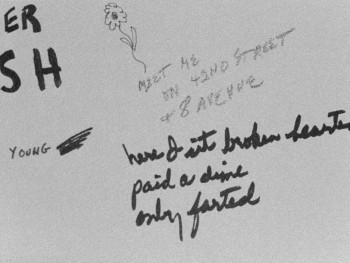 ER
SH
MEET ME
ON 42ND STREET
+ 8 AVENUE
YOUNG
here I sit broken hearted
paid a dime
only farted